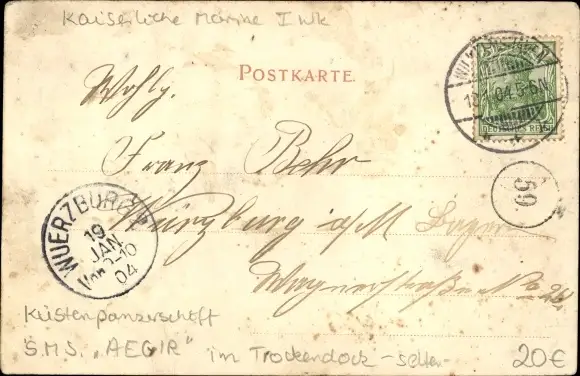 Kaiserliche Marine I WK
POSTKARTE.
WILHELMSHAVEN
18.1.04.5-6N
DEUTSCHES REICH
Wohlg.
Franz Behr
Würzburg a/M Bayern
Wagnerstraße No
59.
WUERZBURG
19
JAN.
04
Küstenpanzerschiff
S.M.S. „AEGIR" im Trockendock - selten -
20€